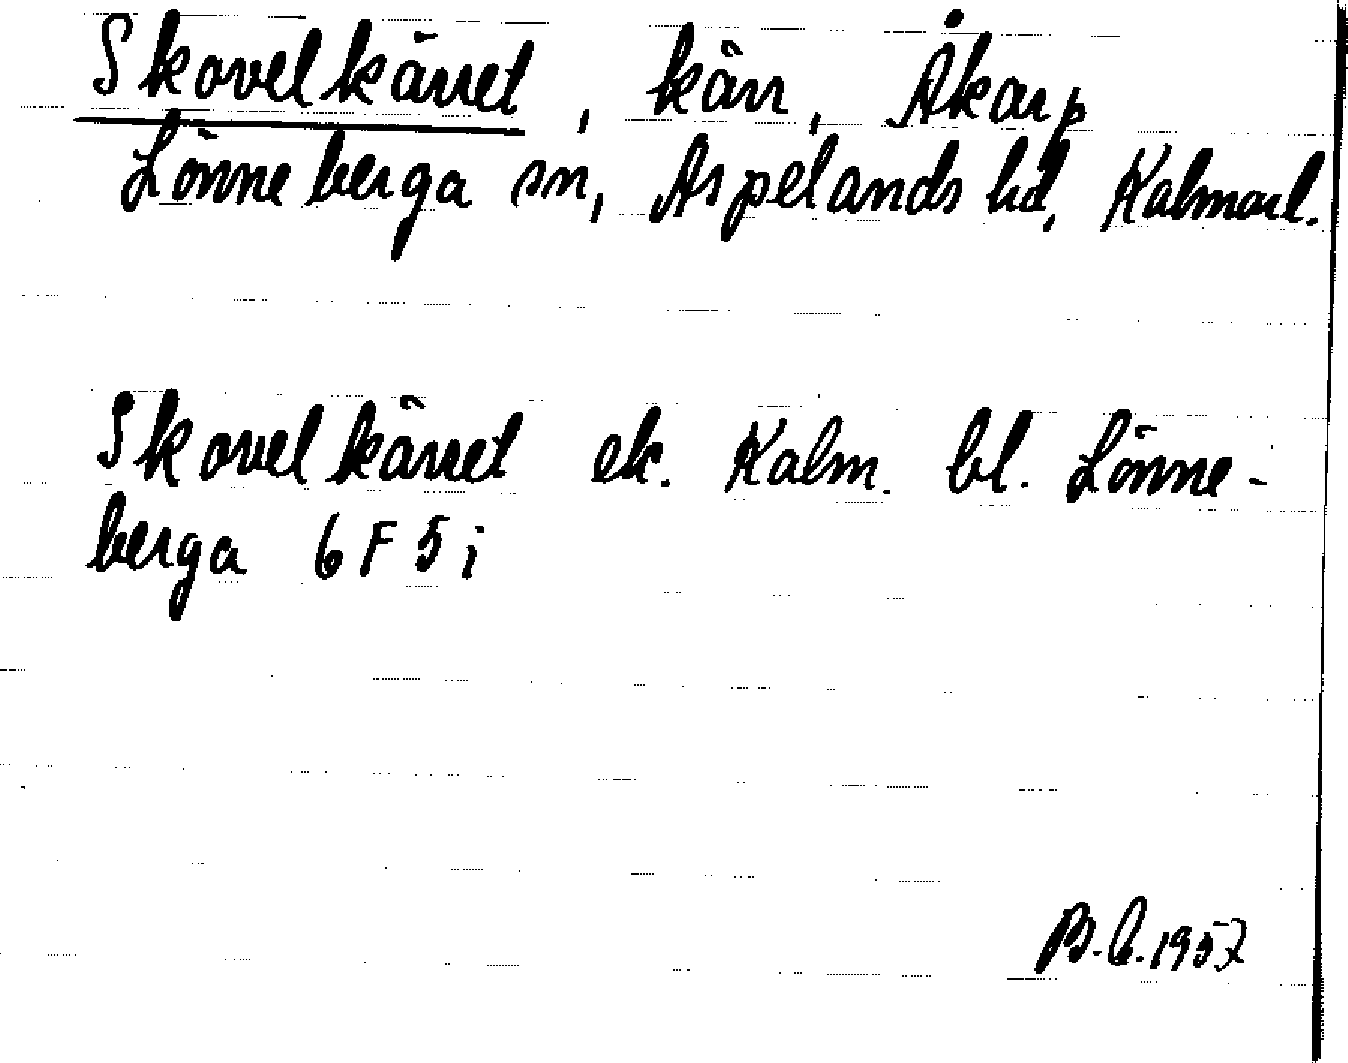 Skovelkärret, kärr, Åkarp
Lönneberga sn, Aspelands hd, Kalmarl.
Skovelkärret ek. Kalm. bl. Lönne-
berga 6 F 5 i
B.C. 1957